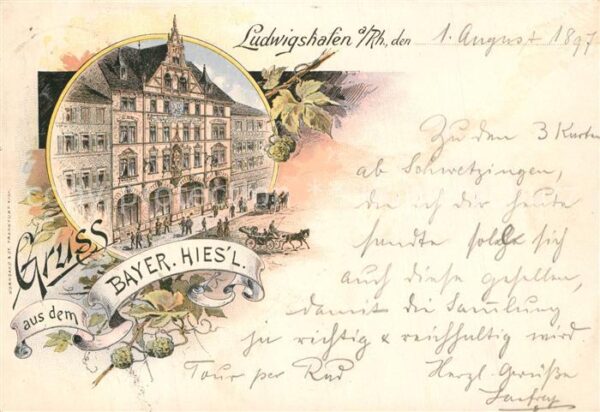 Ludwigshafen a/Rh., den 1. August 1897
Zu den 3 Karten
ab Schwetzingen,
die ich dir heute
sandte soll sich
auch diese gesellen,
damit die Samlung
ja richtig & reichhaltig wird
Tour per Rad Herzl. Grüße
Gruss
aus dem
BAYER. HIES'L.